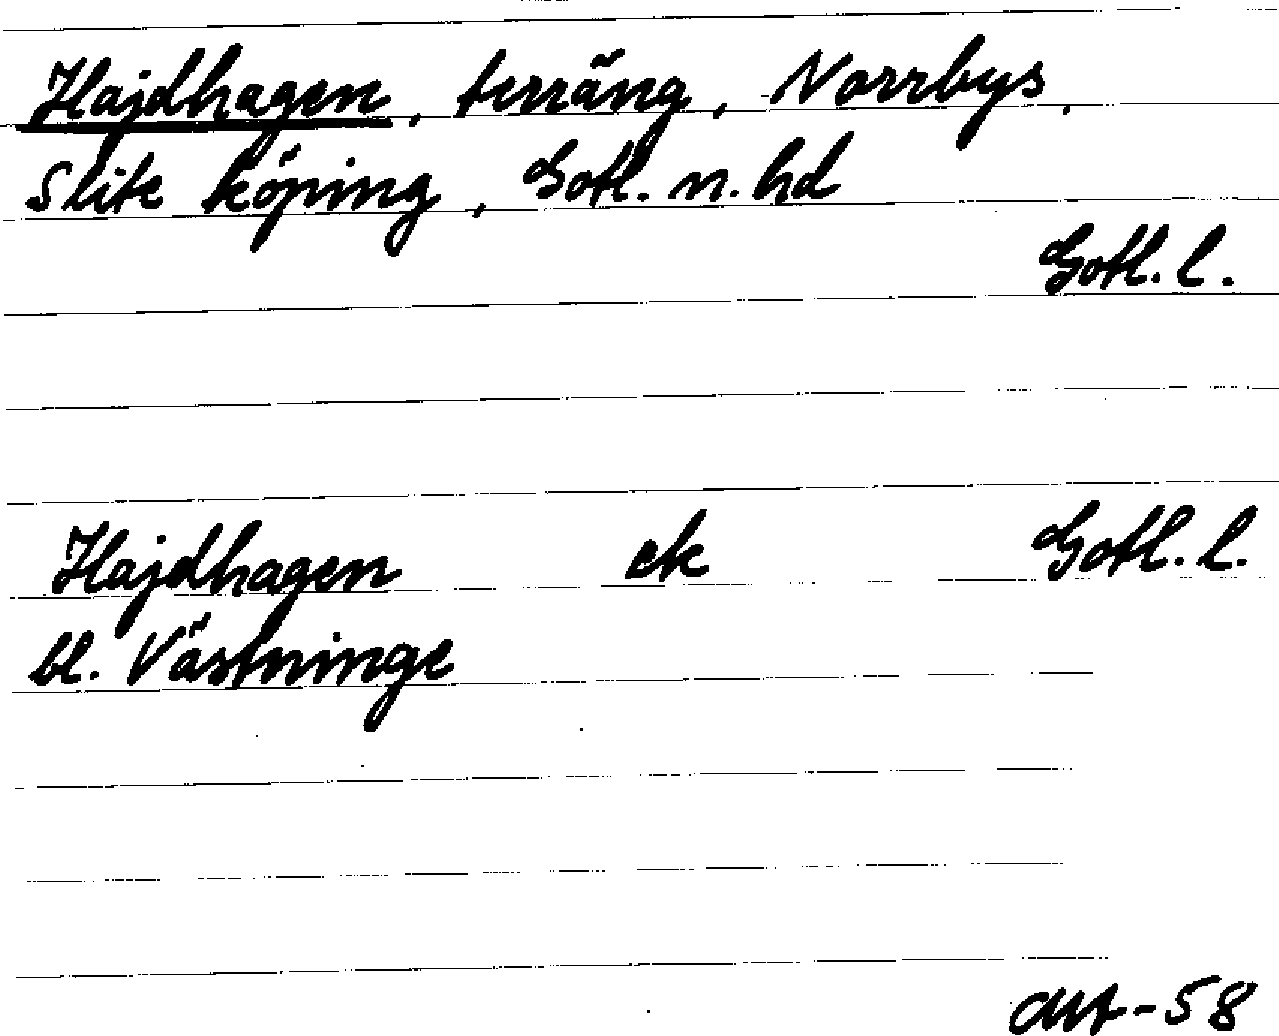 Hajdhagen, terräng, Norrbys,
Slite köping, Gotl. n. hd
Gotl. l.
Hajdhagen ek Gotl. l.
bl. Västninge
-58